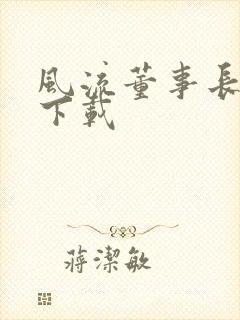 風流董事長
下載
蔣潔敏